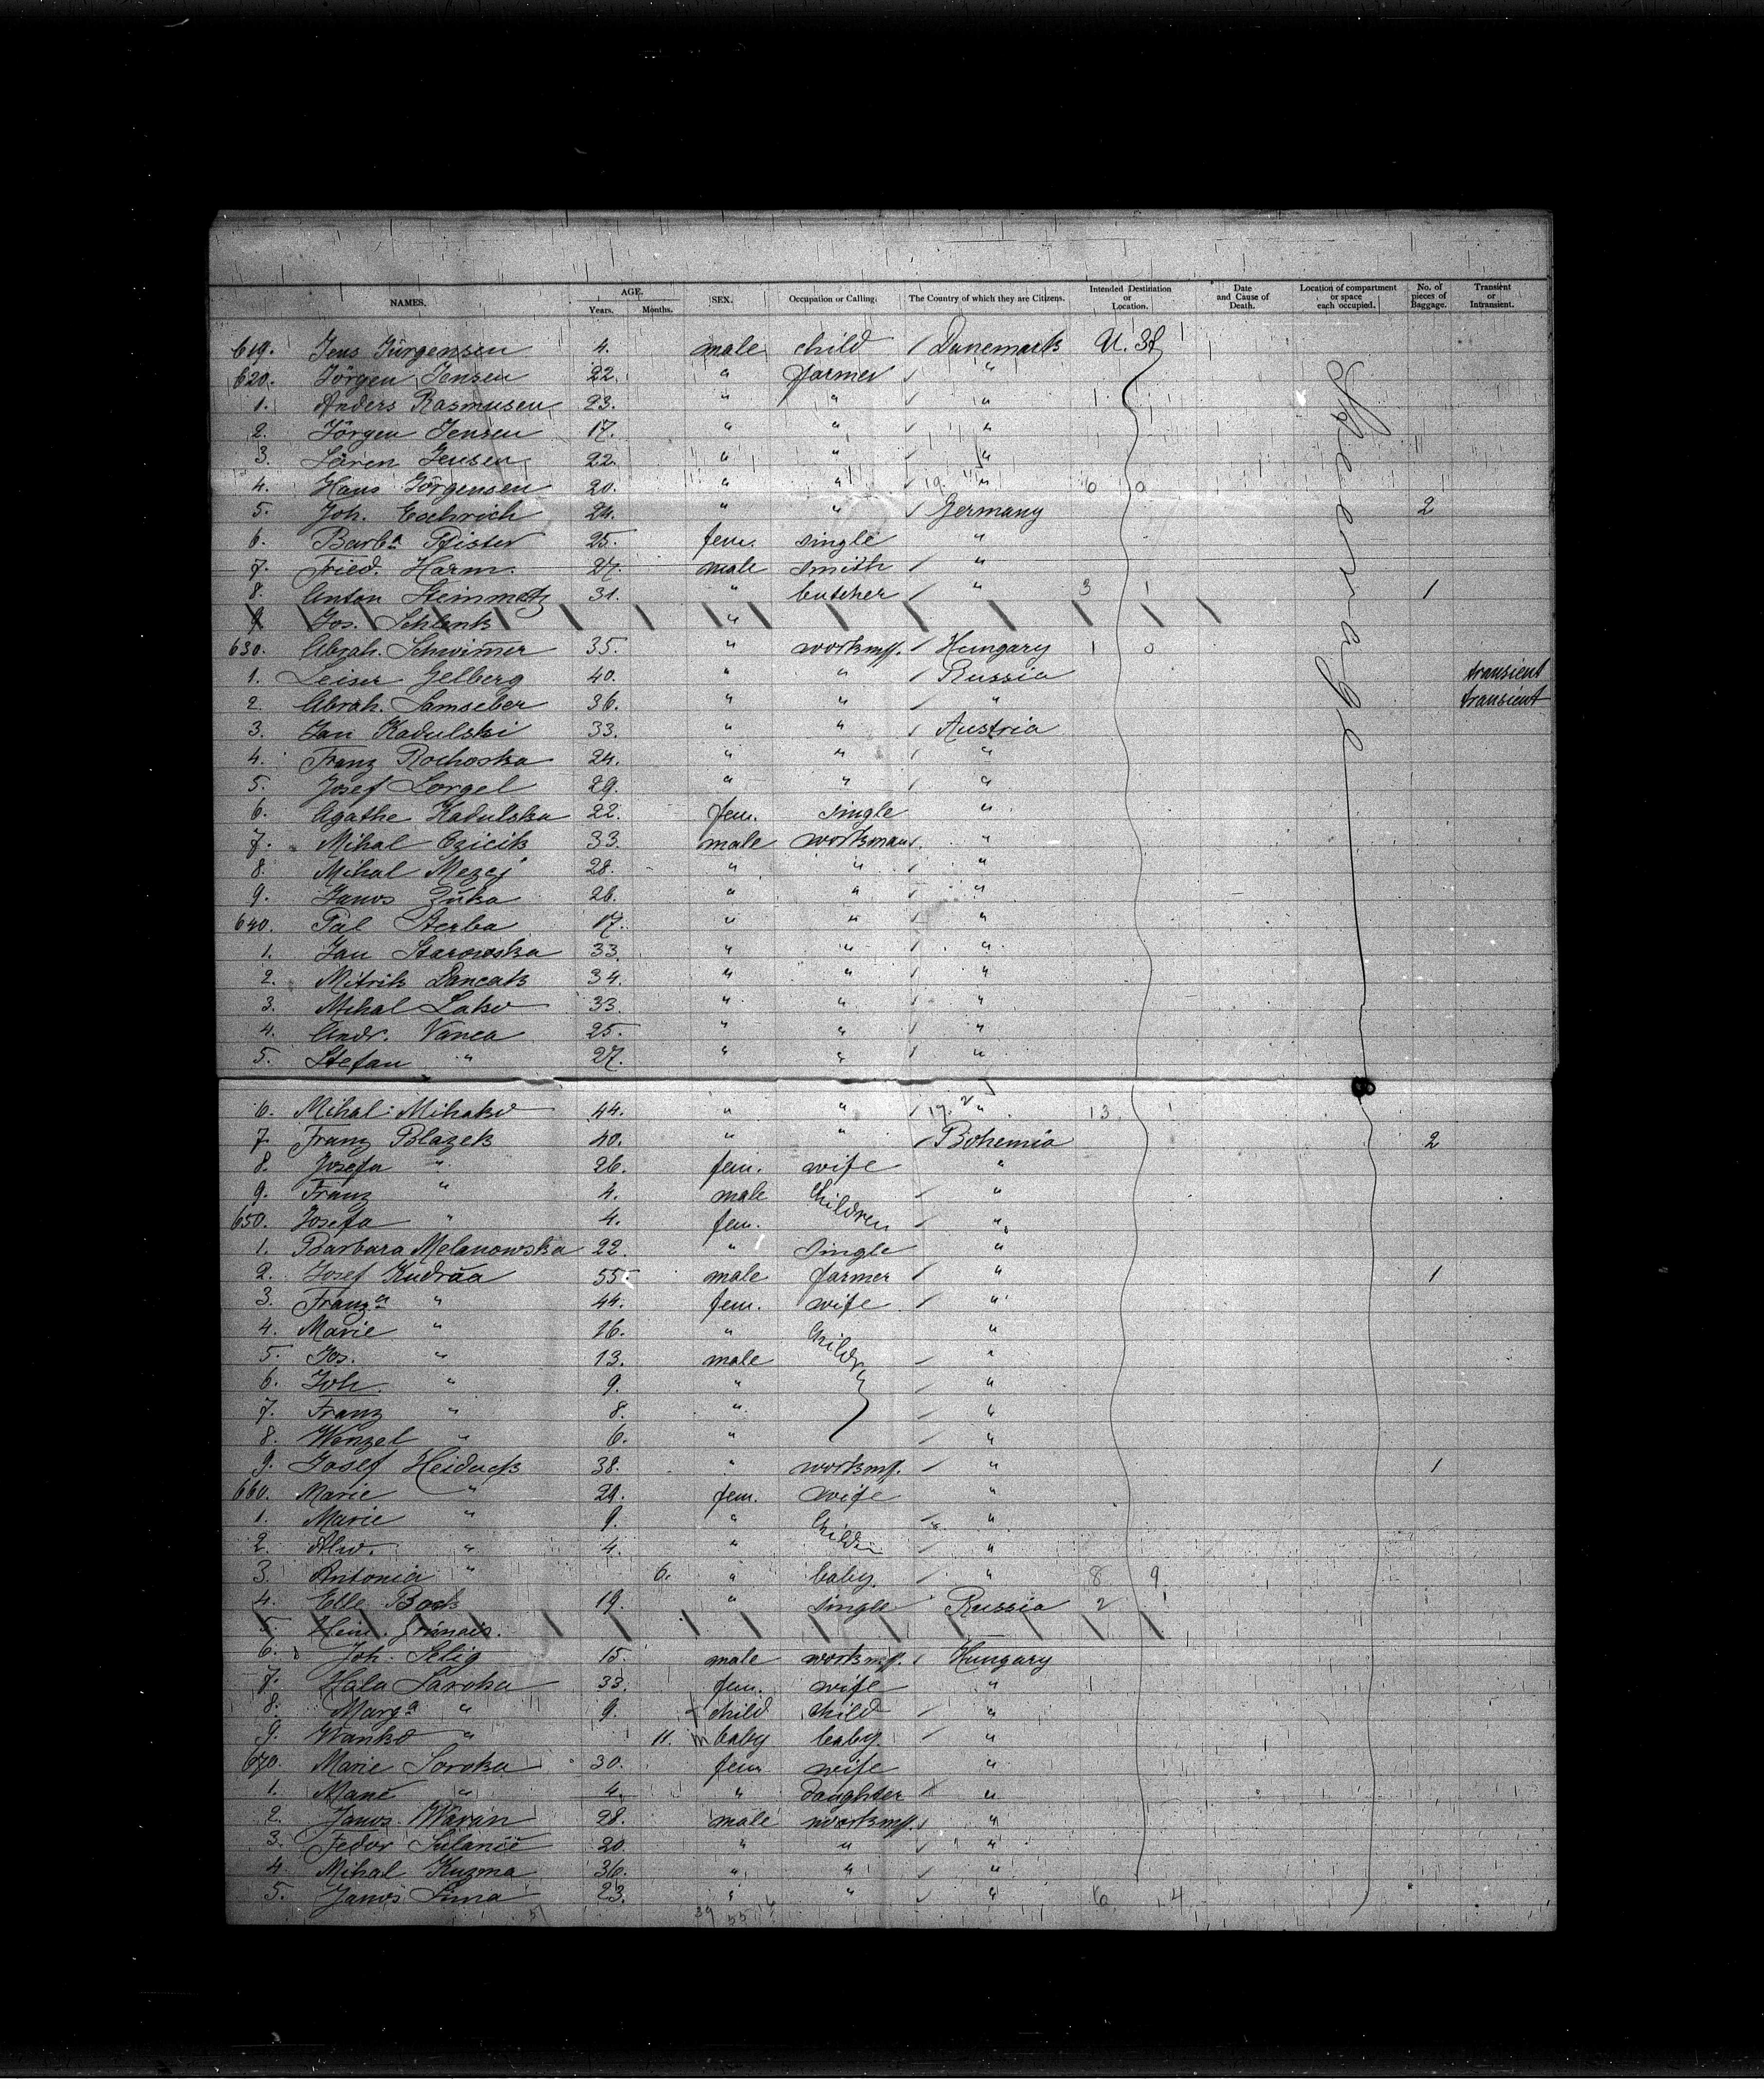 NAMES. AGE. Years. Months. SEX. Occupation or Calling. The Country of which they are Citizens. Intended Destination or Location. Date and Cause of Death. Location of compartment or space each occupied. No. of pieces of Baggage. Transient or Intransient.
619. Jens Jürgensen 4. male child Danemark U. St.
620. Jörgen Jansen 22. " farmer "
1. Anders Rasmusen 23. " " "
2. Jörgen Jensen 17. " " "
3. Sören Jensen 22. " " "
4. Hans Jörgensen 20. " " 19 " 6 0
5. Joh. Eschrich 24. " " Germany 2
6. Barba Pfister 25. fem. single "
7. Fried. Harm. 27. male smith "
8. Anton Steinmetz 31. " butcher " 3 1 1
9. Jos. Schlenk "
630. Abrah. Schwimer 35. " workmn. Hungary 1 0
1. Leiser Gelberg 40. " " Russia transient
2. Abrah. Samseber 36. " " " transient
3. Jan Kadulski 33. " " Austria
4. Franz Rochoska 24. " " "
5. Josef Lorgel 29. " " "
6. Agathe Kadulska 22. fem. single "
7. Mihal Czicik 33. male workman "
8. Mihal Mezej 28. " " "
9. Janos Zuka 26. " " "
640. Pal Sterba 17. " " "
1. Jan Starowska 33. " " "
2. Mitrik Dancak 34. " " "
3. Mihal Lako 33. " " "
4. Andr. Vanca 25. " " "
5. Stefan " 27. " " "
Steerage
6. Mihal Mihako 44. " " 19 2 " 13
7. Franz Blazek 40. " " Bohemia 2
8. Josefa " 26. fem. wife "
9. Franz " 4. male Children "
650. Josefa " 4. fem. "
1. Barbara Melanowska 22. " single "
2. Josef Kudräa 55. male farmer " 1
3. Franza " 44. fem. wife "
4. Marie " 16. " Childr "
5. Jos. " 13. male "
6. Joh. " 9. " "
7. Franz " 8. " "
8. Wenzel " 6. " "
9. Josef Heiduck 38. " workmn. " 1
660. Marie " 29. fem. wife "
1. Marie " 9. " Childr "
2. Alw. " 4. " "
3. Antonia " 6. " baby. " 8 9
4. Elle Bock 19. " single Russia 2
5. Hein.
6. Joh. Selig 15. male workmn. Hungary
7. Hala Saroka 33. fem. wife " 1
8. Marga " 9. f child child "
9. Wanko " 11. m baby baby. "
670. Marie Soroka 30. fem. wife "
1. Mane " 4. " daughter "
2. Janos Waran 28. male workmn. "
3. Fedor Sulancic 20. " " "
4. Mihal Kuzma 36. " " "
5. Janos Sima 23. " " " 6 4
51 39 55